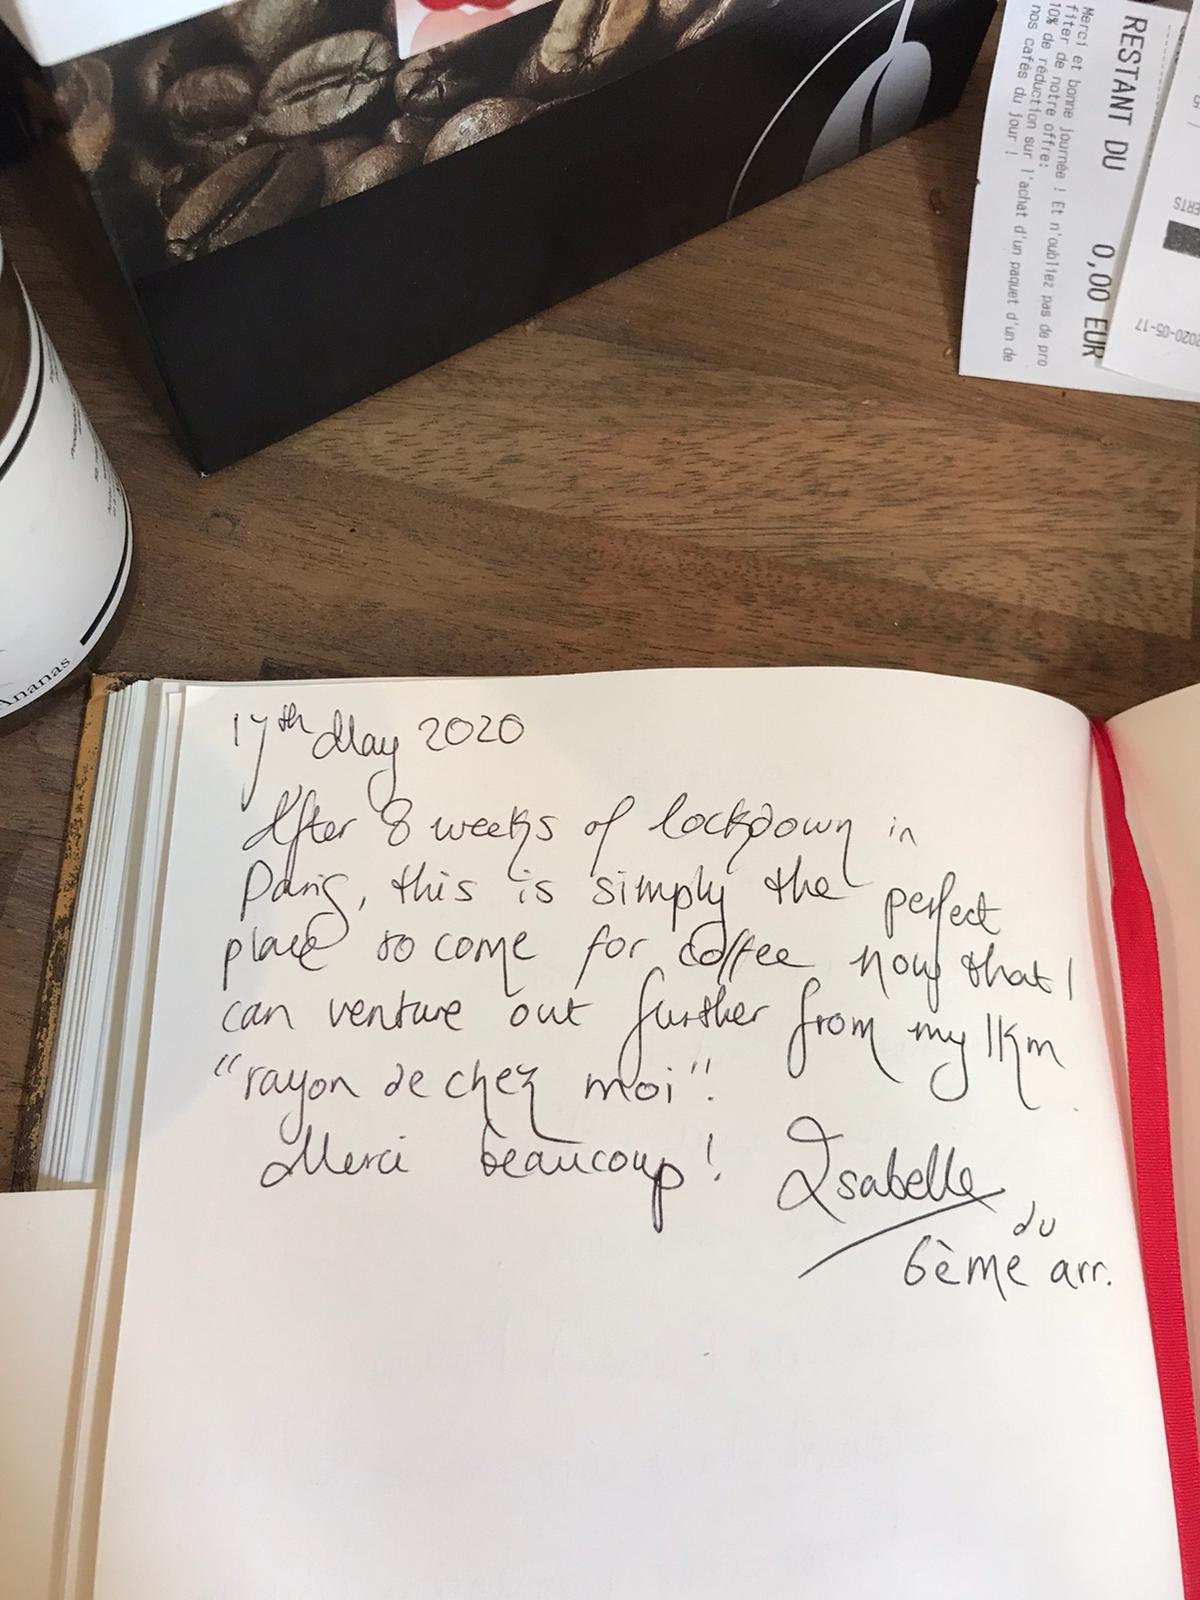 RESTANT DU 0,00 EUR
Merci et bonne journée ! Et n'oubliez pas de pro
fiter de notre offre:
10% de réduction sur l'achat d'un paquet d'un de
nos cafés du jour !
2020-05-17
Ananas
17th May 2020
After 8 weeks of lockdown in
Paris, this is simply the perfect
place to come for coffee now that I
can venture out further from my 1km
"rayon de chez moi"!
Merci beaucoup! Isabelle
du
6ème arr.